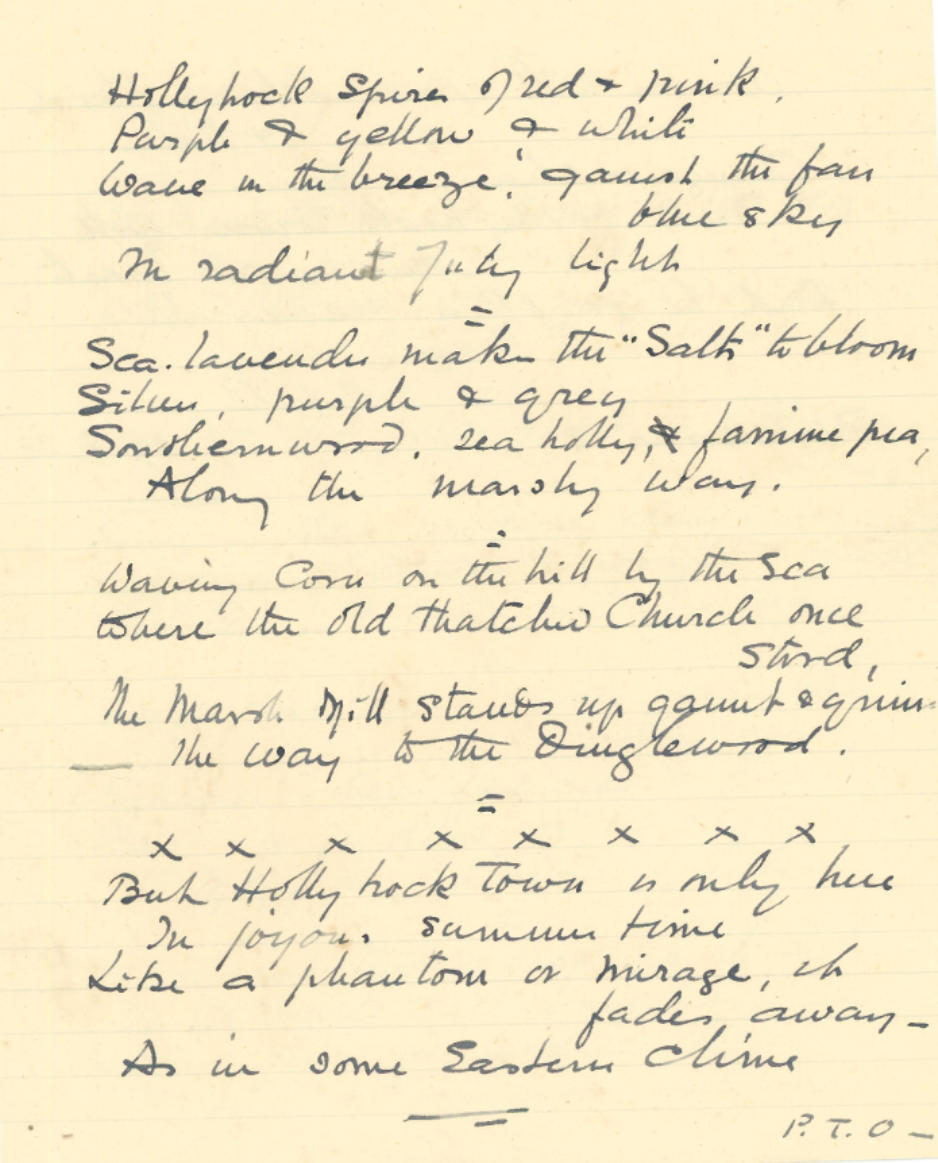 Hollyhock Spires of red & pink,
Purple & yellow & white
Wave in the breeze, 'gainst the fair
blue sky
In radiant July light
=
Sea-lavender makes the "Salts" to bloom
Silver, purple & grey
Southernwood, sea holly, & famine pea,
Along the marshy way.
=
Waving Corn on the hill by the Sea
Where the old thatched Church once
Stood,
The Marsh Mill stands up gaunt & grim
— The way to the Dinglewood.
=
x x x x x x x x
But Hollyhock Town is only here
In joyous summer time
Like a phantom or mirage, it
fades away -
As in some Eastern Clime
P.T.O -